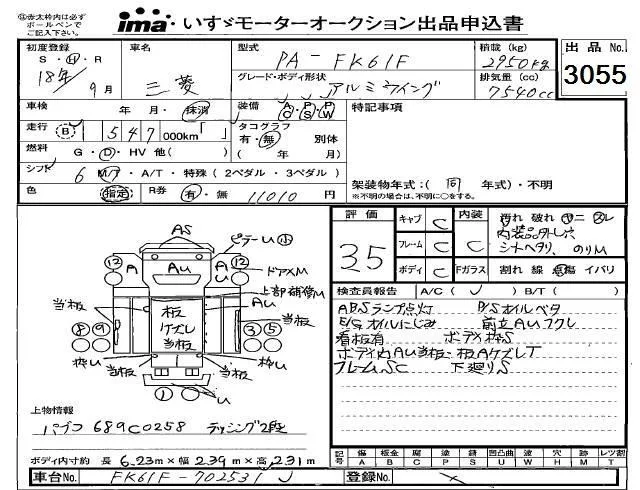 ◎赤太枠内は必ず
ボールペンで
ご記入下さい。
ima・いすゞモーターオークション出品申込書
初度登録 車名 型式 PA-FK61F 積載 (kg) 2950kg 出品No.
S・H・R 18年 9月 三菱 グレード・ボディ形状 アルミウイング 排気量 (cc) 7540cc 3055
車検 年・月・抹消 装備 A/C P/S P/W 特記事項
走行 B 1 5 4 7 000km「 」 タコグラフ 有・無 別体
燃料 G・D・HV 他( ) ( 年 月)
シフト 6 MT・A/T・特殊(2ペダル・3ペダル) 架装物年式:( 同 年式)・不明
色 指定 R券 有・無 11010 円 ※不明の場合は、不明に○をする。
評価 3.5 キャブ C 内装 C 汚れ 破れ ヤニ スレ
フレーム C 内装品外レ穴
シートヘタリ、のりM
ボディ C Fガラス 割れ 線 点傷 イバリ
検査員報告 A/C( ) B/T( )
ABSランプ点灯 P/Sオイルベタ
E/Gオイルにじみ 前立AUフクレ
看板有 ボディ枠S
ボディ内AU当板・板AケズレT
フレームSC 下廻りS
AS
ピラーU小
12 A Au A U 12 ドアXM
上部補修M
当板 板 AU
ケズレ
当板 当板
8 9 3 5
枠U 当板 当板 枠U
1 U
上物情報
パブコ 689C0258 ラッシング2段
ボディ内寸約 長 6.23m×幅 2.39m×高 2.31m
記号 傷 板金 腐 塗 錆 凹凸曲 波 穴 跡 レツ割
A B C P S U W H M T
車台No. FK61F-702531 登録No.